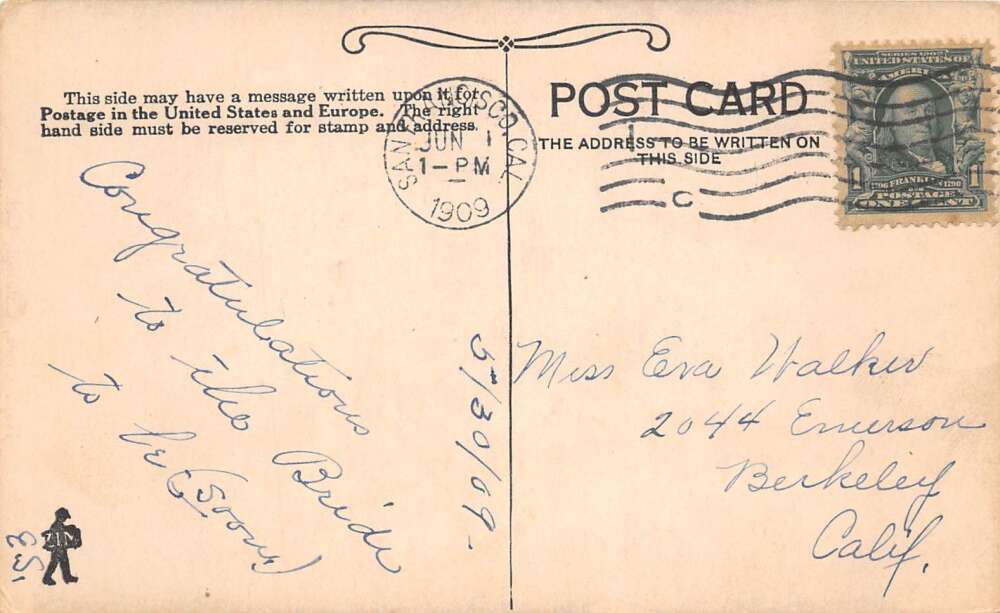 This side may have a message written upon it for
Postage in the United States and Europe. The right
hand side must be reserved for stamp and address.
SAN FRANCISCO, CAL.
JUN 1
1-PM
1909
POST CARD
THE ADDRESS TO BE WRITTEN ON
THIS SIDE
1
C
SERIES 1902
UNITED STATES OF
AMERICA
1 FRANKLIN 1
POSTAGE
ONE CENT
Congratulations
to the Bride
to be (Soon)
5/30/09-
Miss Eva Walker
2044 Emerson
Berkeley
Calif.